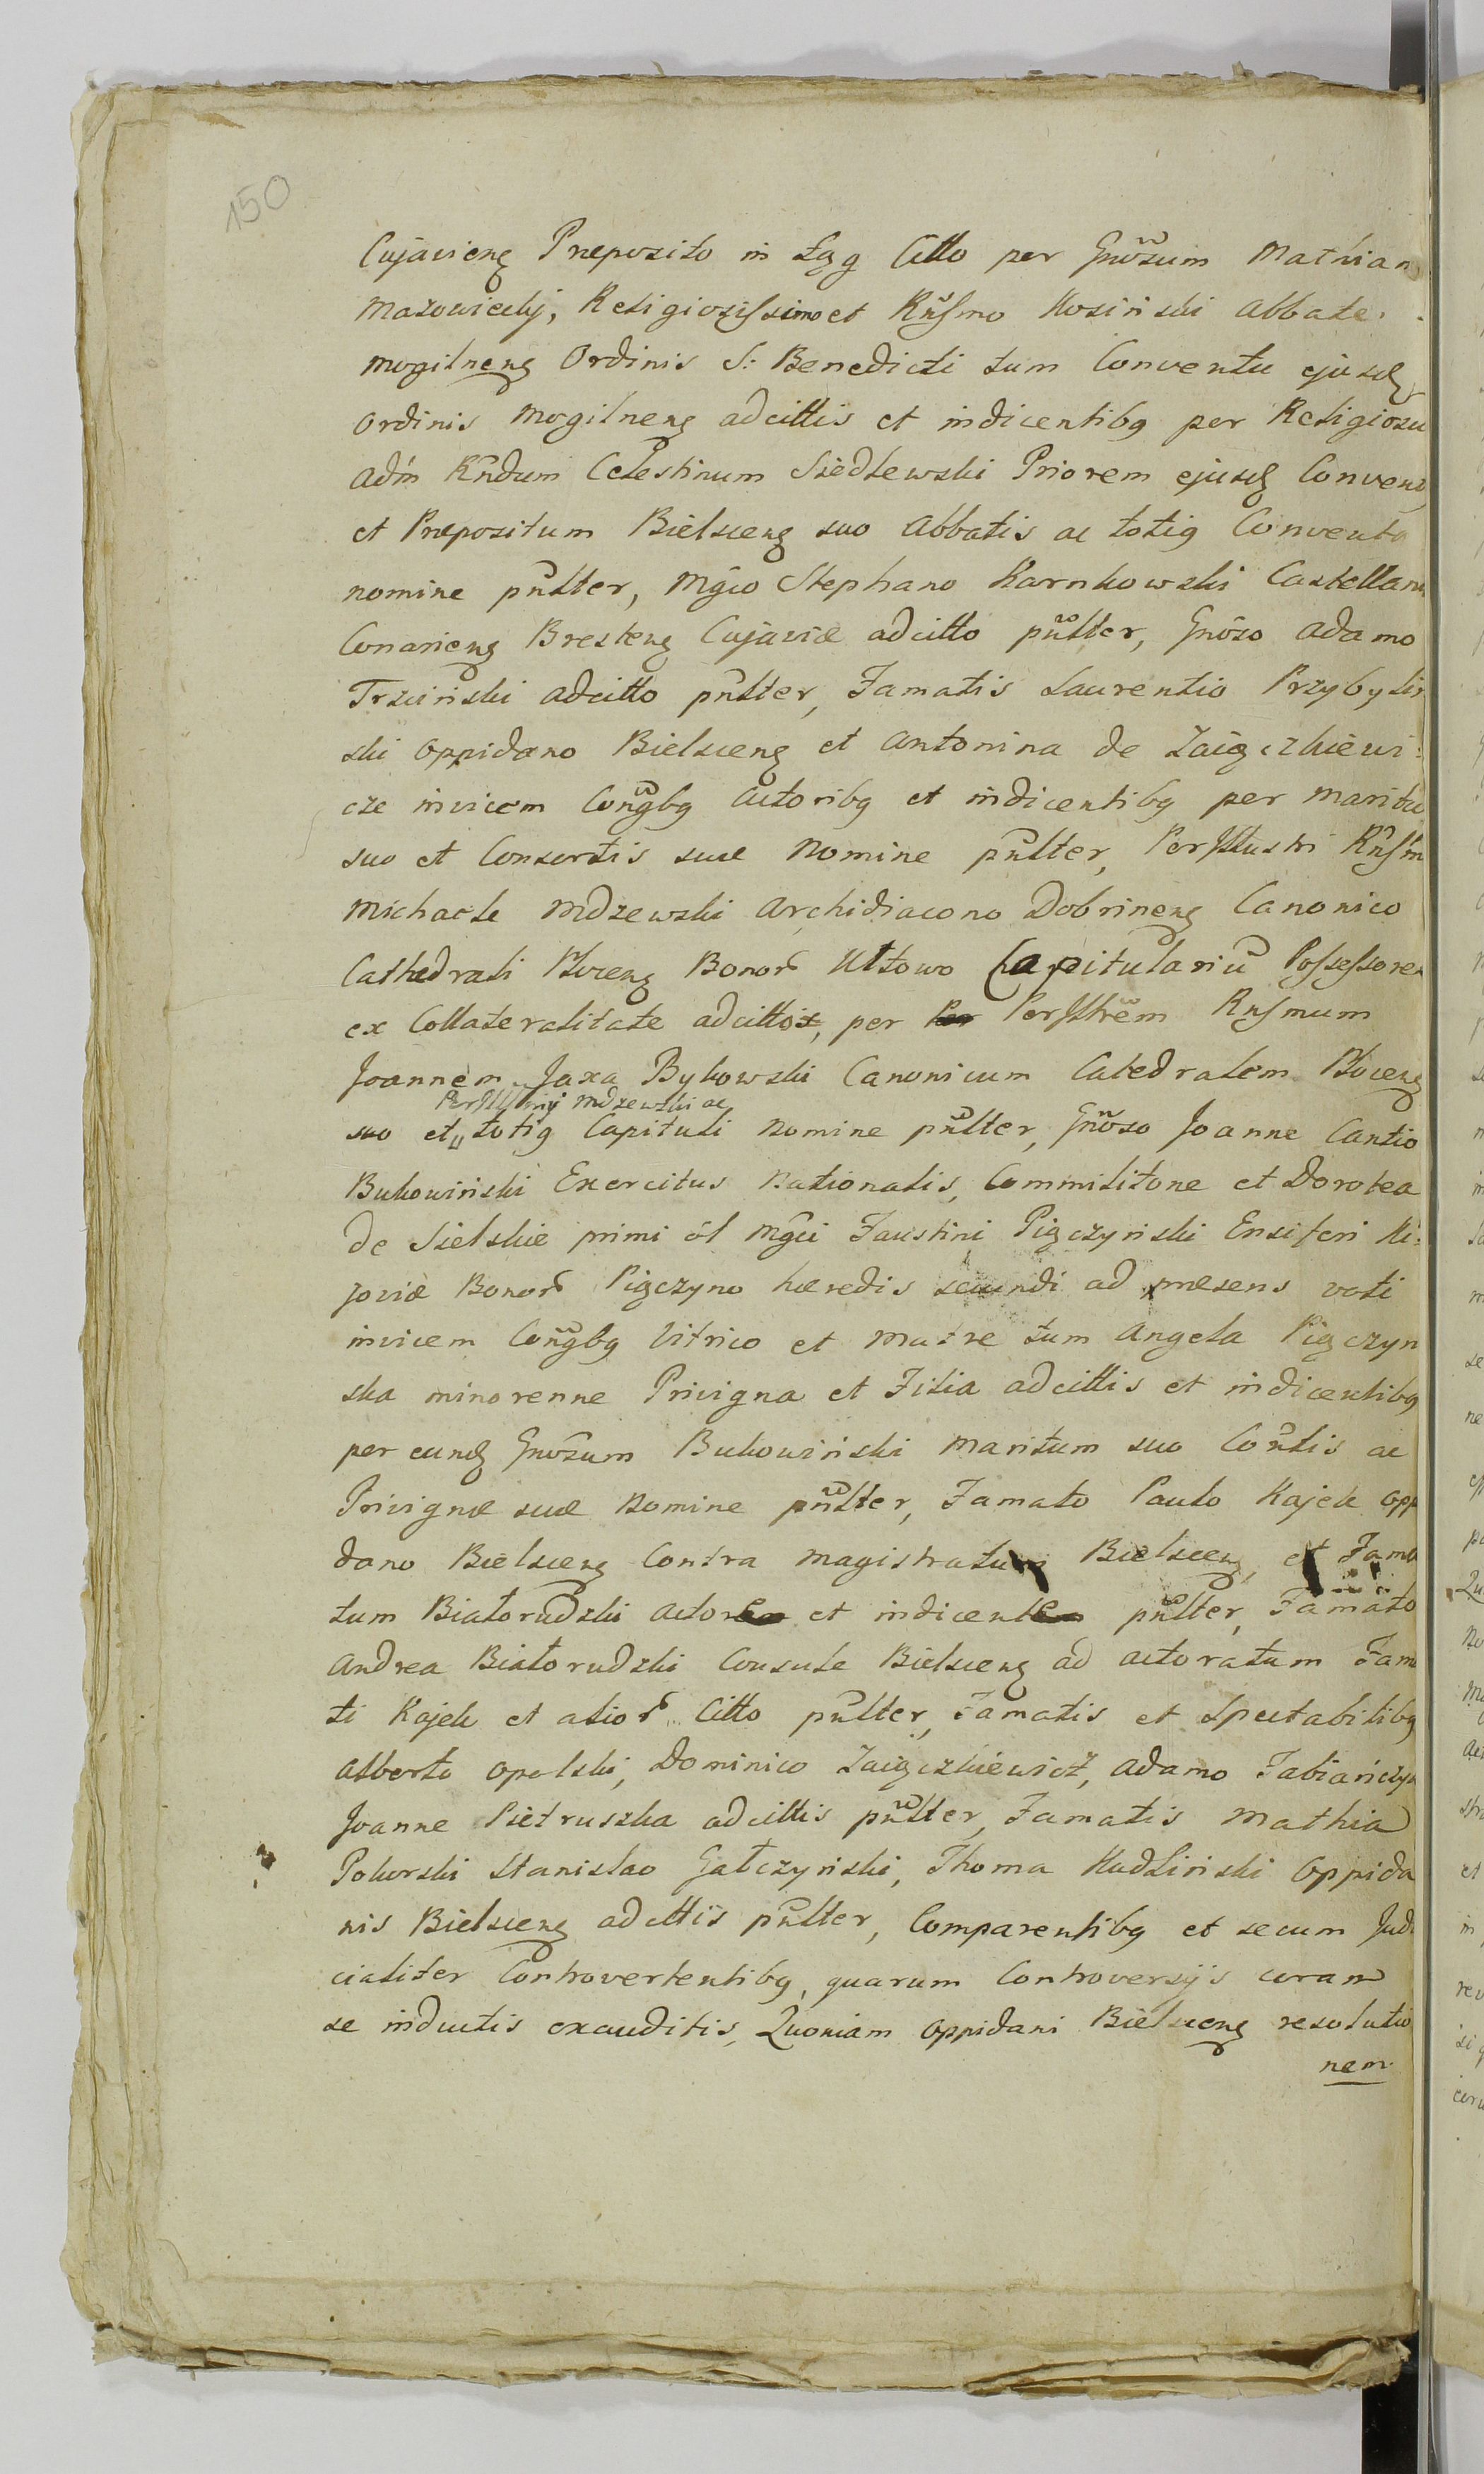 150
Cujavieng Præposito in Łąg Citto per Gnosum Mathiam
Mazowiecky, Religiosissimo et Rnsmo Kosinski Abbate
Mogilneng Ordinis S: Benedicti tum Conventu ejusd
Ordinis Mogilneng adcittis et indicentibg per Religiosu
Adm Rndum Celestinum Siedlewski Priorem ejusd Convent
et Præpositum Bielsceng suo Abbatis ac totig Conventu
nomine pnlter, Mgio Stephano Karnkowski Castellano
Conarieng Bresteng Cujaviæ adcitto pnlter, Gnoso Adamo
Trzcinski adcitto pnlter, Famatis Laurentio Przybylin
ski Oppidano Bielsceng et Antonina de Zaiączkiewi:
cze invicem Congbg Actoribg et indicentibg per maritu
suo et Consortis suæ Nomine pnlter, PerIllustri Rnsm
Michaele Mdzewski Archidiacono Dobrineng Canonico
Cathedrali Ploceng Bonor Ułtowo Capitulariu Possessorem
ex Collateralitate adcitto, per PerIllrem Rnsmum
Joannem Jaxa Bykowski Canonicum Catedralem Ploceng
PerIllris Mdzewski ac
suo et totig Capituli Nomine pnlter, Gnoso Joanne Cantio
Bukowiński Exercitus Nationalis, Commilitone et Dorotea
de Sielskie primi ol Mgii Faustini Pigczyński Ensiferi Ki:
joviæ Bonor Pigczyno hæredis secundi ad præsens voti
invicem Congbg Vitrico et Matre tum Angela Pigczyn
ska minorenne Privigna et Filia adcittis et indicentibg
per eund Gnosum Bukowiński Maritum suo Contis ac
Privignæ suæ Nomine pnlter, Famato Paulo Kajek Opp
dano Bielsceng Contra Magistratum Bielsceng, et Fama
tum Białorudzki Actore et indicente pnlter, Famato
Andrea Białorudzki Consule Bielsceng ad actoratum Fama
ti Kajek et alior Citto pnlter, Famatis et Spectabilibg
Alberto Opolski, Dominico Zaigczkiewicz, Adamo Fabiańczyk
Joanne Pietruszka adcittis pnlter, Famatis Mathia
Pokorski Stanislao Gałczyński, Thoma Kudliński Oppida
nis Bielsceng adcittis pnlter, Comparentibg et secum Judi
cialiter Controvertentibg, quarum Controversijs coram
se inductis exauditis, Quoniam Oppidani Bielsceng resolutio
nem